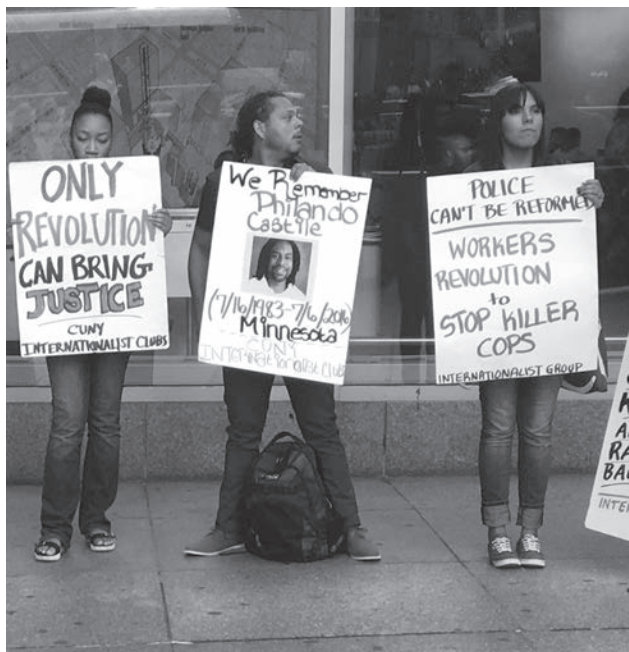 ONLY
REVOLUTION
CAN BRING
JUSTICE
CUNY
INTERNATIONALIST CLUBS
We Remember
Philando
Castile
(7/16/1983-7/6/2016)
Minnesota
CUNY
INTERNATIONALIST CLUBS
POLICE
CAN'T BE REFORMED
WORKERS
REVOLUTION
to
STOP KILLER
COPS
INTERNATIONALIST GROUP
K
A
RA
BA
INTE